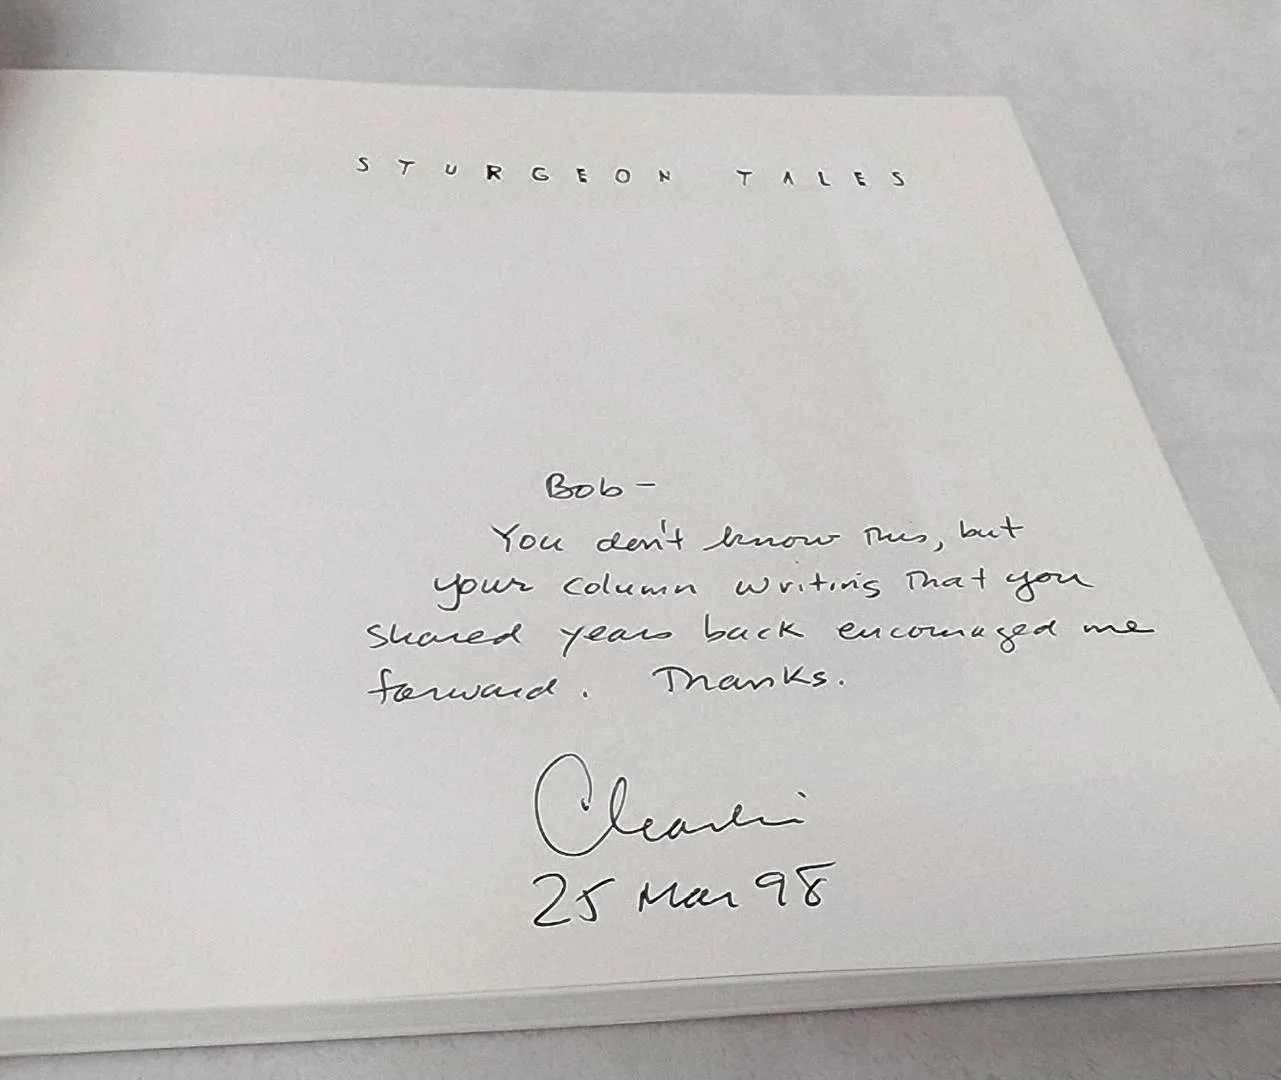 STURGEON TALES
Bob -
You don't know this, but
your column writing that you
shared years back encouraged me
forward. Thanks.
Charlie
25 Mar 98